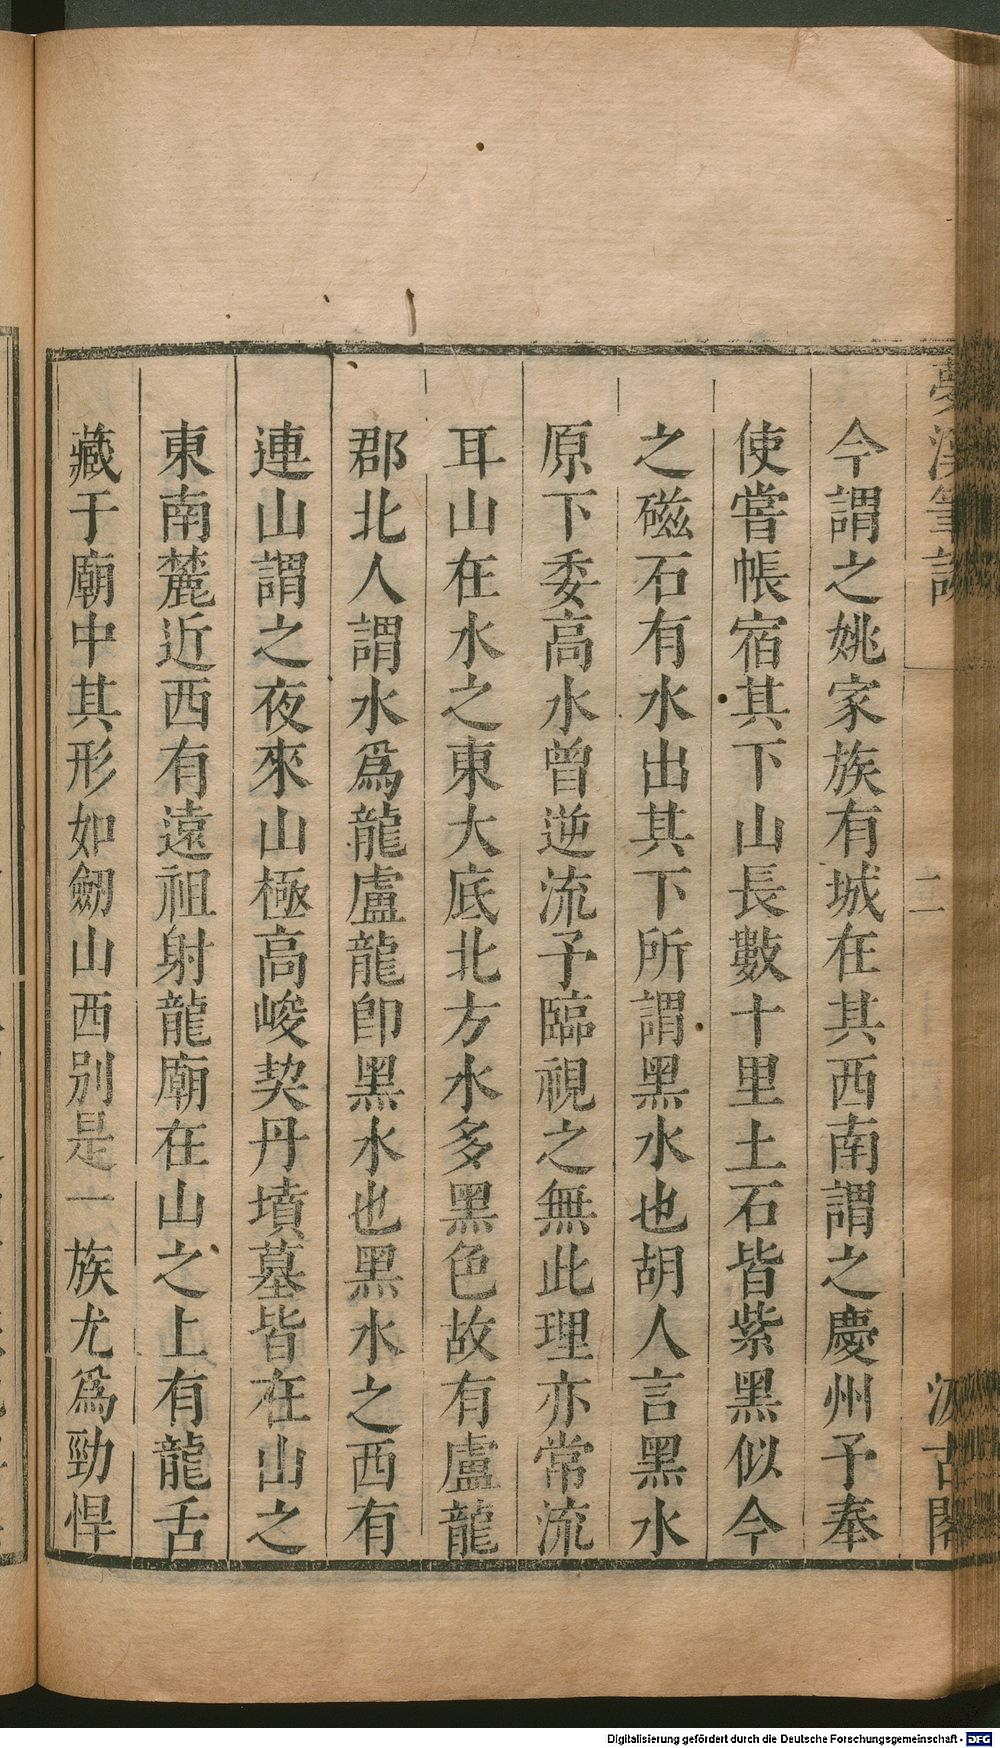 夢溪筆談
二
汲古閣
今謂之姚家族有城在其西南謂之慶州予奉
使嘗帳宿其下山長數十里土石皆紫黑似今
之磁石有水出其下所謂黑水也胡人言黑水
原下委高水曾逆流予臨視之無此理亦常流
耳山在水之東大底北方水多黑色故有盧龍
郡北人謂水爲龍盧龍卽黑水也黑水之西有
連山謂之夜來山極高峻契丹墳墓皆在山之
東南麓近西有遠祖射龍廟在山之上有龍舌
藏于廟中其形如劒山西別是一族尤爲勁悍
Digitalisierung gefördert durch die Deutsche Forschungsgemeinschaft - DFG